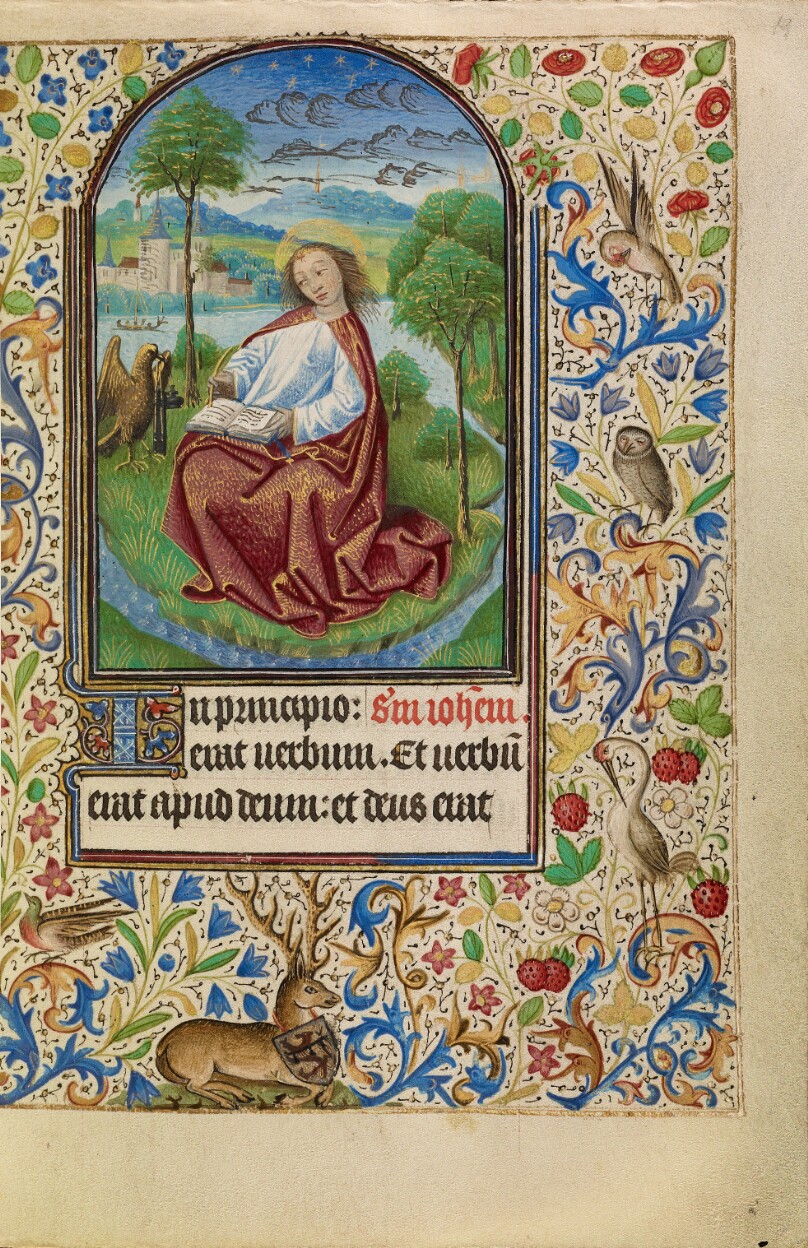 In principio: S'm ioh̄em.
erat uerbum. Et uerbū
erat apud deum: et deus erat